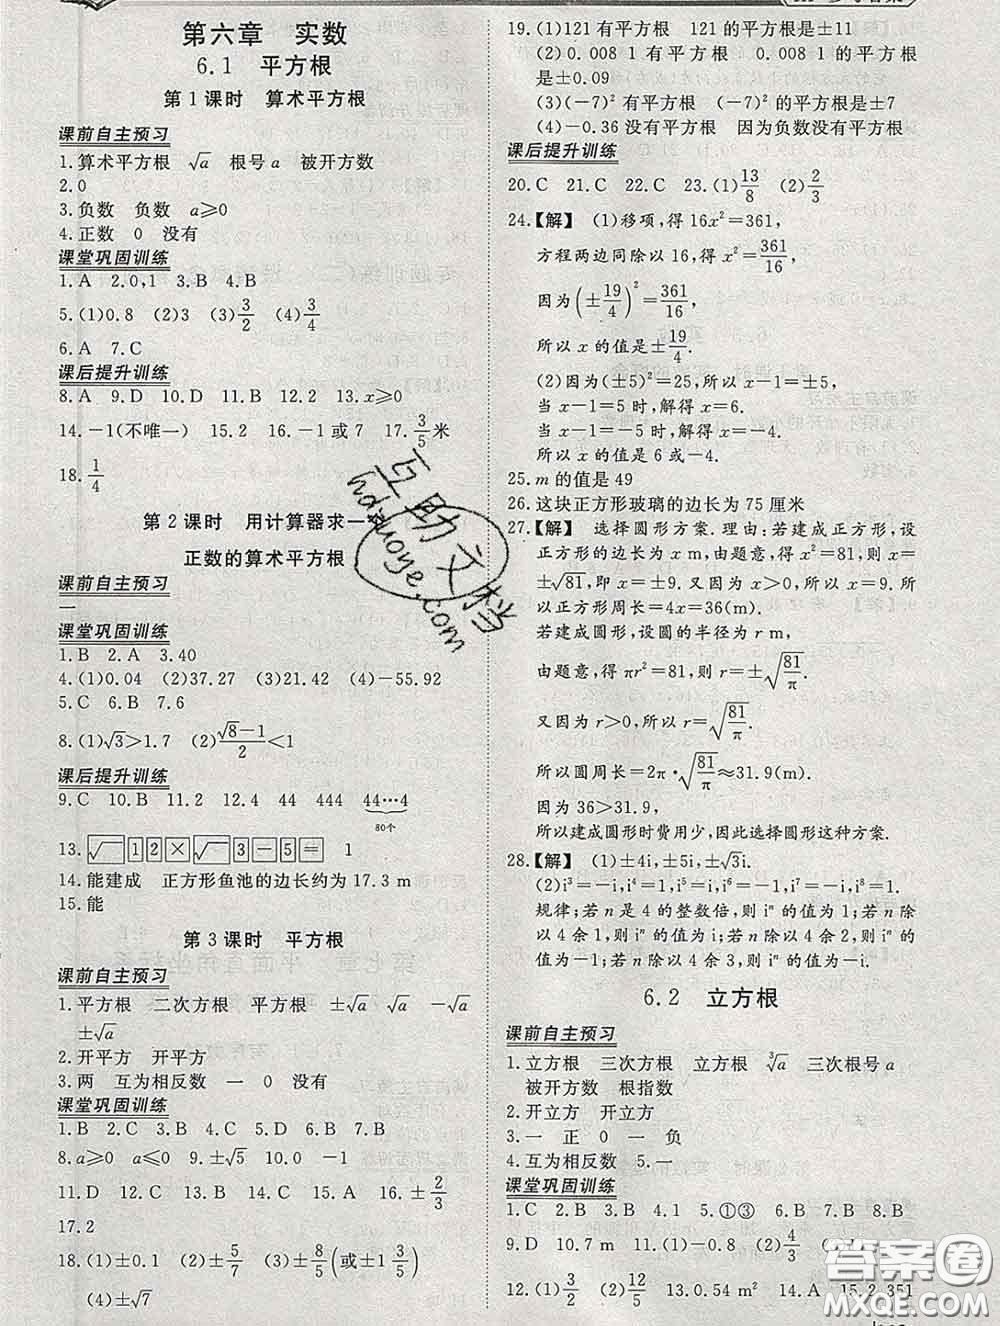 第六章 实数
6.1 平方根
第1课时 算术平方根
课前自主预习
1.算术平方根 √a 根号a 被开方数
2.0
3.负数 负数 a≥0
4.正数 0 没有
课堂巩固训练
1.A 2.0,1 3.B 4.B
5.(1)0.8 (2)3 (3)3/2 (4)3/4
6.A 7.C
课后提升训练
8.A 9.D 10.D 11.B 12.2 13.x≥0
14.-1(不唯一) 15.2 16.-1或7 17.3/5米
18.1/4
第2课时 用计算器求一
正数的算术平方根
课前自主预习
一
课堂巩固训练
1.B 2.A 3.40
4.(1)0.04 (2)37.27 (3)21.42 (4)-55.92
5.C 6.B 7.6
8.(1)√3>1.7 (2)(√8-1)/2<1
课后提升训练
9.C 10.B 11.2 12.4 44 444 44…4
80个
13.√ 1 2 × √ 3 - 5 = 1
14.能建成 正方形鱼池的边长约为17.3 m
15.能
第3课时 平方根
课前自主预习
1.平方根 二次方根 平方根 ±√a √a -√a
±√a
2.开平方 开平方
3.两 互为相反数 一 0 没有
课堂巩固训练
1.B 2.D 3.C 4.B 5.D 6.B 7.B
8.a≥0 a≤0 9.±√5 10.0 -1
11.D 12.A 13.C 14.B 15.A 16.±2/3
17.2
18.(1)±0.1 (2)±5/7 (3)±8/5(或±1 3/5)
(4)±√7
19.(1)121有平方根 121的平方根是±11
(2)0.008 1有平方根 0.008 1的平方根
是±0.09
(3)(-7)²有平方根 (-7)²的平方根是±7
(4)-0.36没有平方根 因为负数没有平方根
课后提升训练
20.C 21.C 22.C 23.(1)13/8 (2)2/3
24.【解】 (1)移项,得16x²=361,
方程两边同除以16,得x²=361/16,
因为(±19/4)²=361/16,
所以x的值是±19/4.
(2)因为(±5)²=25,所以x-1=±5,
当x-1=5时,解得x=6.
当x-1=-5时,解得x=-4.
所以x的值是6或-4.
25.m的值是49
26.这块正方形玻璃的边长为75厘米
27.【解】 选择圆形方案.理由:若建成正方形,设
正方形的边长为x m,由题意,得x²=81,则x=
±√81,即x=±9.又因为x>0,所以x=9.所
以正方形周长=4x=36(m).
若建成圆形,设圆的半径为r m,
由题意,得πr²=81,则r=±√(81/π).
又因为r>0,所以r=√(81/π).
所以圆周长=2π·√(81/π)≈31.9(m).
因为36>31.9,
所以建成圆形时费用少,因此选择圆形这种方案.
28.【解】 (1)±4i,±√3i.
(2)i³=-i,i⁴=1,i⁵=i,i⁶=-1,i⁷=-i,i⁸=1.
规律:若n是4的整数倍,则iⁿ的值为1;若n除
以4余1,则iⁿ的值为i;若n除以4余2,则iⁿ的
值为-1;若n除以4余3,则iⁿ的值为-i.
6.2 立方根
课前自主预习
1.立方根 三次方根 立方根 ³√a 三次根号a
被开方数 根指数
2.开立方 开立方
3.一 正 0 一 负
4.互为相反数 5.一
课堂巩固训练
1.C 2.B 3.B 4.1 5.①③ 6.B 7.B 8.B
9.D 10.7 m 11.(1)-0.8 (2)4/3
12.(1)3/2 (2)12/5 13.0.54 m² 14.A 15.2 351
互助文档
hdzuoye.com
答案圈
MXQE.COM